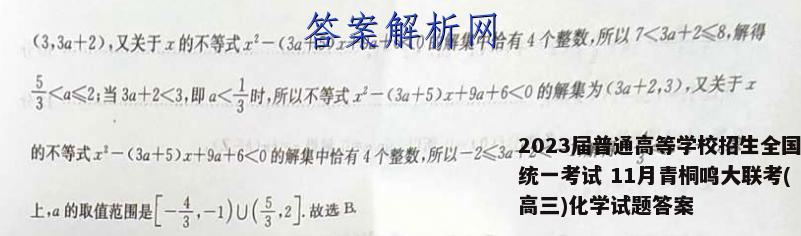 答案解析网
(3,3a+2),又关于x的不等式x²-(3a 的解集中恰有4个整数,所以7<3a+2≤8,解得
5/3<a≤2;当3a+2<3,即a<1/3时,所以不等式x²-(3a+5)x+9a+6<0的解集为(3a+2,3),又关于x
的不等式x²-(3a+5)x+9a+6<0的解集中恰有4个整数,所以-2≤3a+2
上,a的取值范围是[-4/3,-1)∪(5/3,2].故选B.
2023届普通高等学校招生全国
统一考试 11月青桐鸣大联考(
高三)化学试题答案